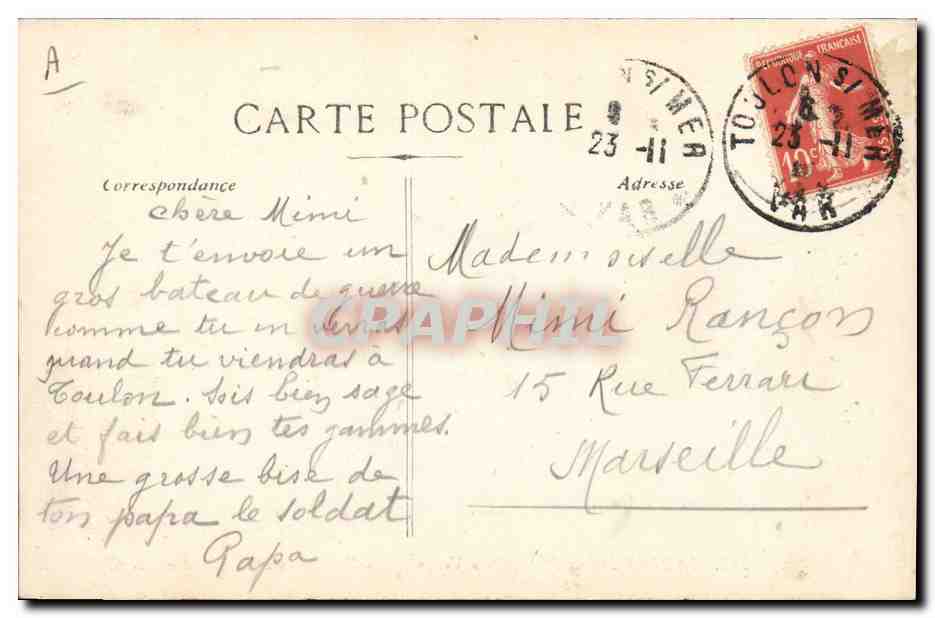 A
CARTE POSTALE
Correspondance
Adresse
chère Mimi
Je t'envoie un
gros bateau de guerre
comme tu en verras
quand tu viendras à
Toulon. Sois bien sage
et fais bien tes gammes.
Une grosse bise de
ton papa le soldat
Papa
Mademoiselle
Mimi Rançon
15 Rue Ferrari
Marseille
N S/ MER
23 -11
VAR
TOULON S/ MER
23 -11
VAR
REPUBLIQUE FRANÇAISE
10c
CPAPHIL